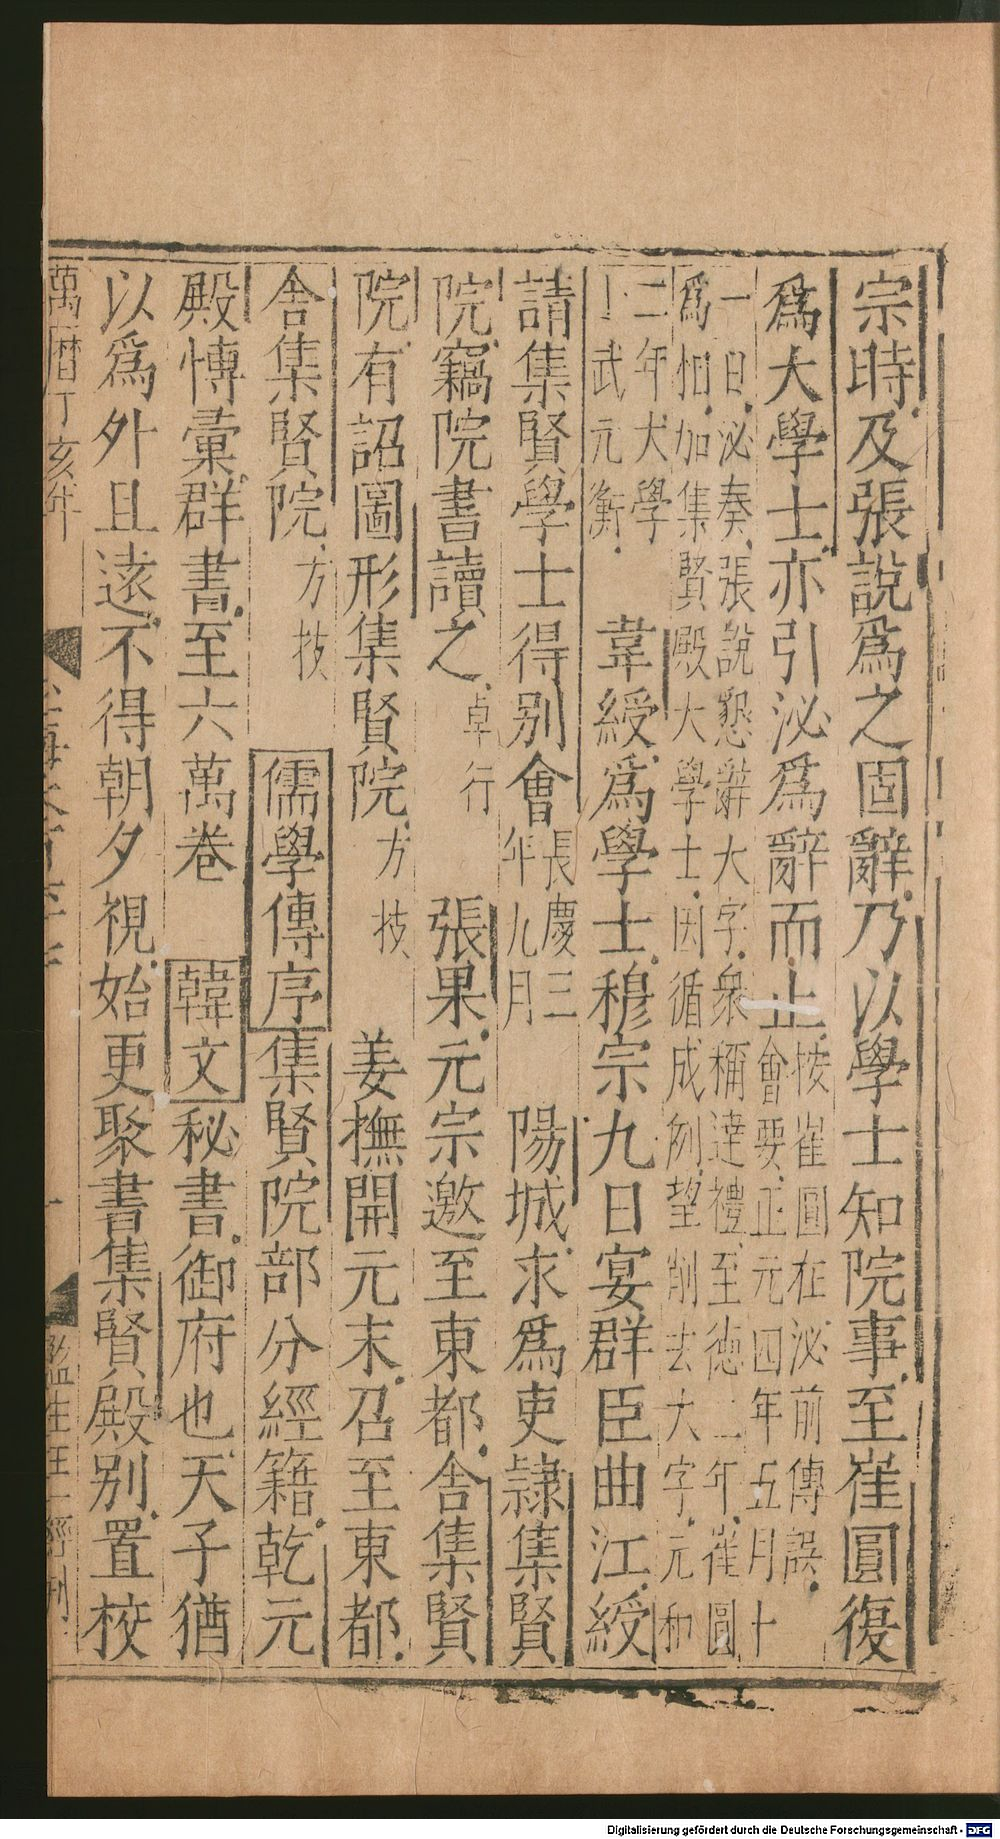 宗時及張說為之固辭乃以學士知院事至崔圓復
為大學士亦引泌為辭而止按崔圓在泌前傳誤會要正元四年五月十
一日泌奏張說懇辭大字衆稱達禮至德二年崔圓
為相加集賢殿大學士因循成例望削去大字元和
二年大學士武元衡 韋綬為學士穆宗九日宴群臣曲江綬
請集賢學士得別會長慶三年九月 陽城求為吏隷集賢
院竊院書讀之卓行 張果元宗邀至東都舍集賢
院有詔圖形集賢院方技 姜撫開元末召至東都
舍集賢院方技 儒學傳序集賢院部分經籍乾元
殿博彙群書至六萬卷 韓文秘書御府也天子猶
以為外且遠不得朝夕視始更聚書集賢殿別置校
萬曆丁亥年 監生汪一經刊
Digitalisierung gefördert durch die Deutsche Forschungsgemeinschaft - DFG